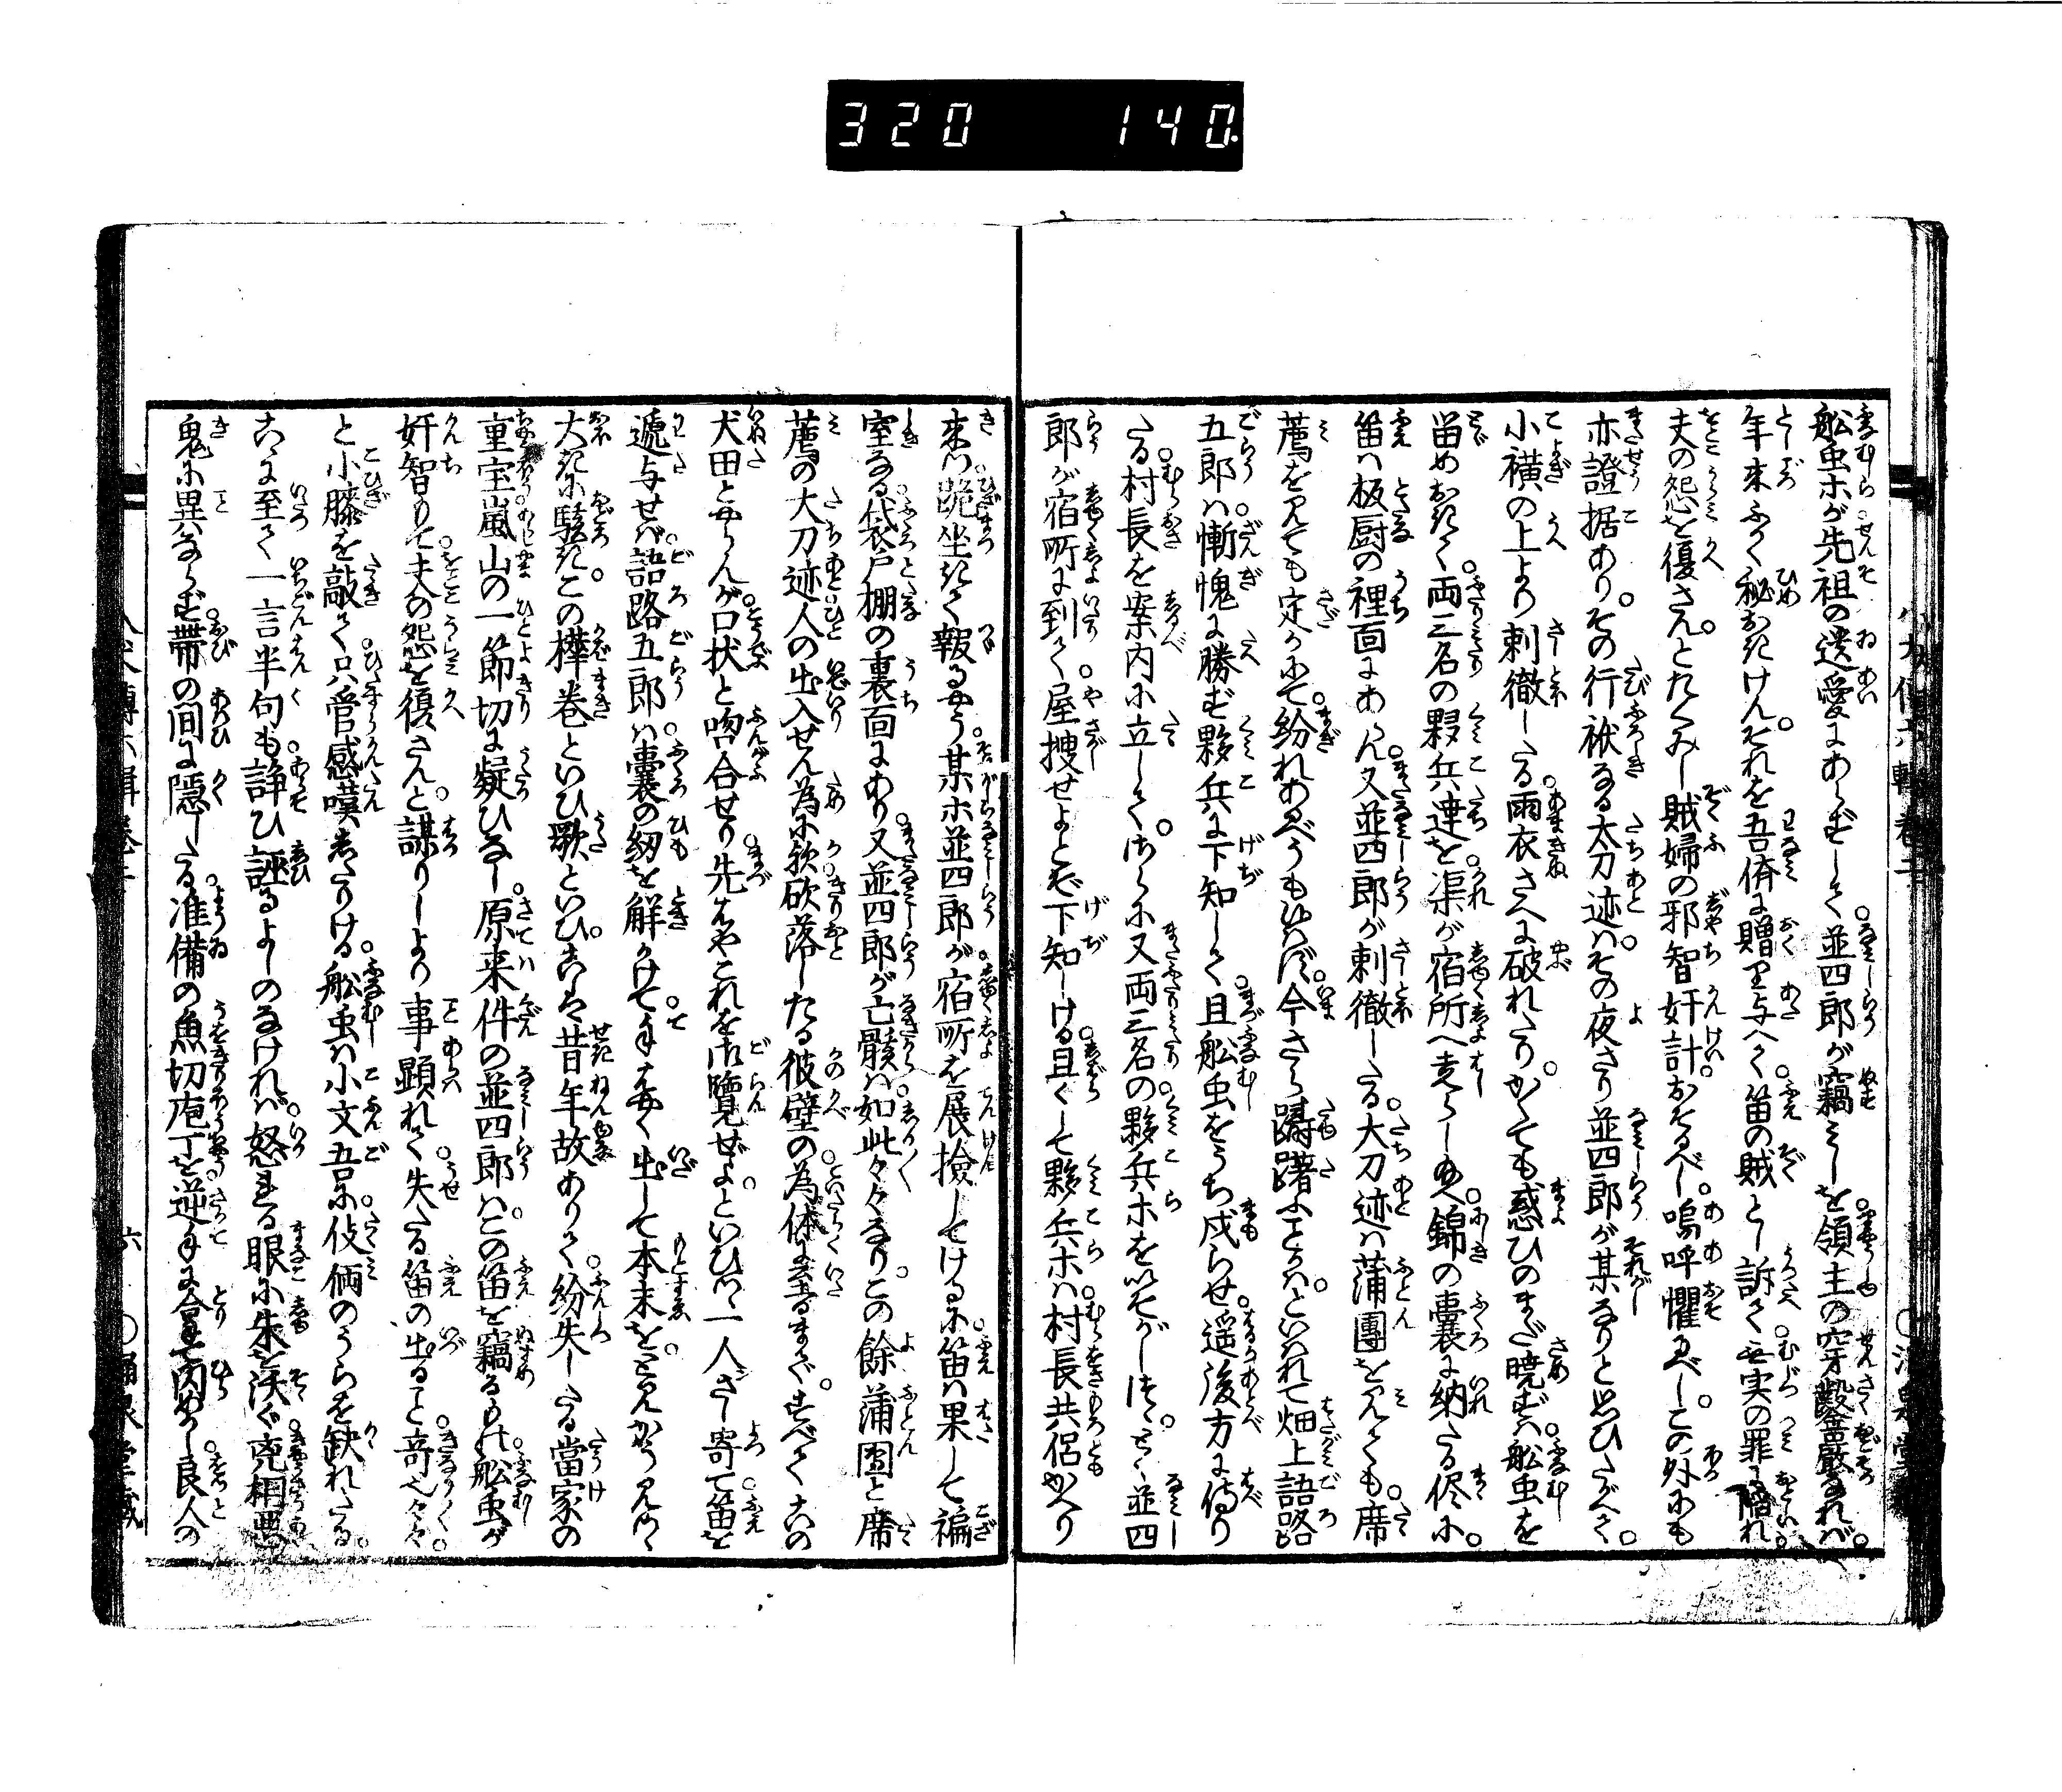 320 140
船虫ホが先祖の遺愛にあらずして並四郎が竊そを領主の穿鑿厳なれば。
年来ふかく秘おきけん。それを吾侪に贈り与へて。笛の賊と訴て无実の罪に陥れ。
夫の怨を復さん。とたくみし賊婦の邪智奸計。おそるべし嗚呼懼るべし。この外にも
亦證据あり。その行袱なる太刀迹は。その夜さり並四郎が某なりと思ひたがへて。
小襖の上より刺徹したる雨衣さへに破れたり。かくても惑ひのまだ暁ずは船虫を
留めおきて。両三名の夥兵達を渠が宿所へ走らし給へ錦の嚢に納たる侭に。
笛は板厨の裡面にあらん。又並四郎が刺徹したる。大刀迹は蒲團を見ても。席
薦を見ても定かにて。紛れあるべうも候はず。今さら躊躇ふことかは。といはれて畑上語路
五郎は慚愧に勝ず夥兵に下知して。且船虫をうち戍らせ。遥後方に侍り
たる村長を案内に立して。さらに又両三名の夥兵ホをいそがしつゝ。とく並四
郎が宿所に到て屋捜せよと下知しける。且くして夥兵ホは村長共侶かへり
来つ。跪坐きて報るやう。某ホ並四郎が宿所を展撿してけるに。笛は果して褊
室なる。袋戸棚の裏面にあり。又並四郎が亡骸は如此々々なり。この餘蒲團と席
薦の大刀迹人の出入せん為に歟砍落したる彼壁の為体に至るまで。すべてこの
犬田とやらんが口状と吻合せり。先はやこれを御覽ぜよ。といひつゝ一人さし寄て笛を
遞与せば。語路五郎は。嚢の紐を解かけて。手ばやく出して本末を。と見かう見つゝ
大きに駭き。この樺巻といひ歌といひ。こは是昔年故ありて。紛失したる當家の
重宝嵐山の一節切に疑ひなし。原来件の並四郎は。この笛を竊るもの船虫が
奸智もて。夫の怨を復さんと。謀りしより事顕れて。失たる笛の出ると奇也々々。
と小膝を敲て。只管感嘆したりける。船虫は小文吾に。伎倆のうらを缺れたる。
さに至て一言半句も。諍ひ誣るよしのなければ。怒れる眼に朱を沃ぐ。兇相悪
鬼に異ならず。帯の間に隠したる。准備の魚切庖丁を。逆手に合て閃めかし良人の